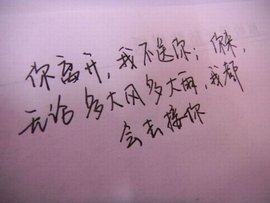 你离开，我不送你；你来，
无论多大风多大雨，我都
会去接你